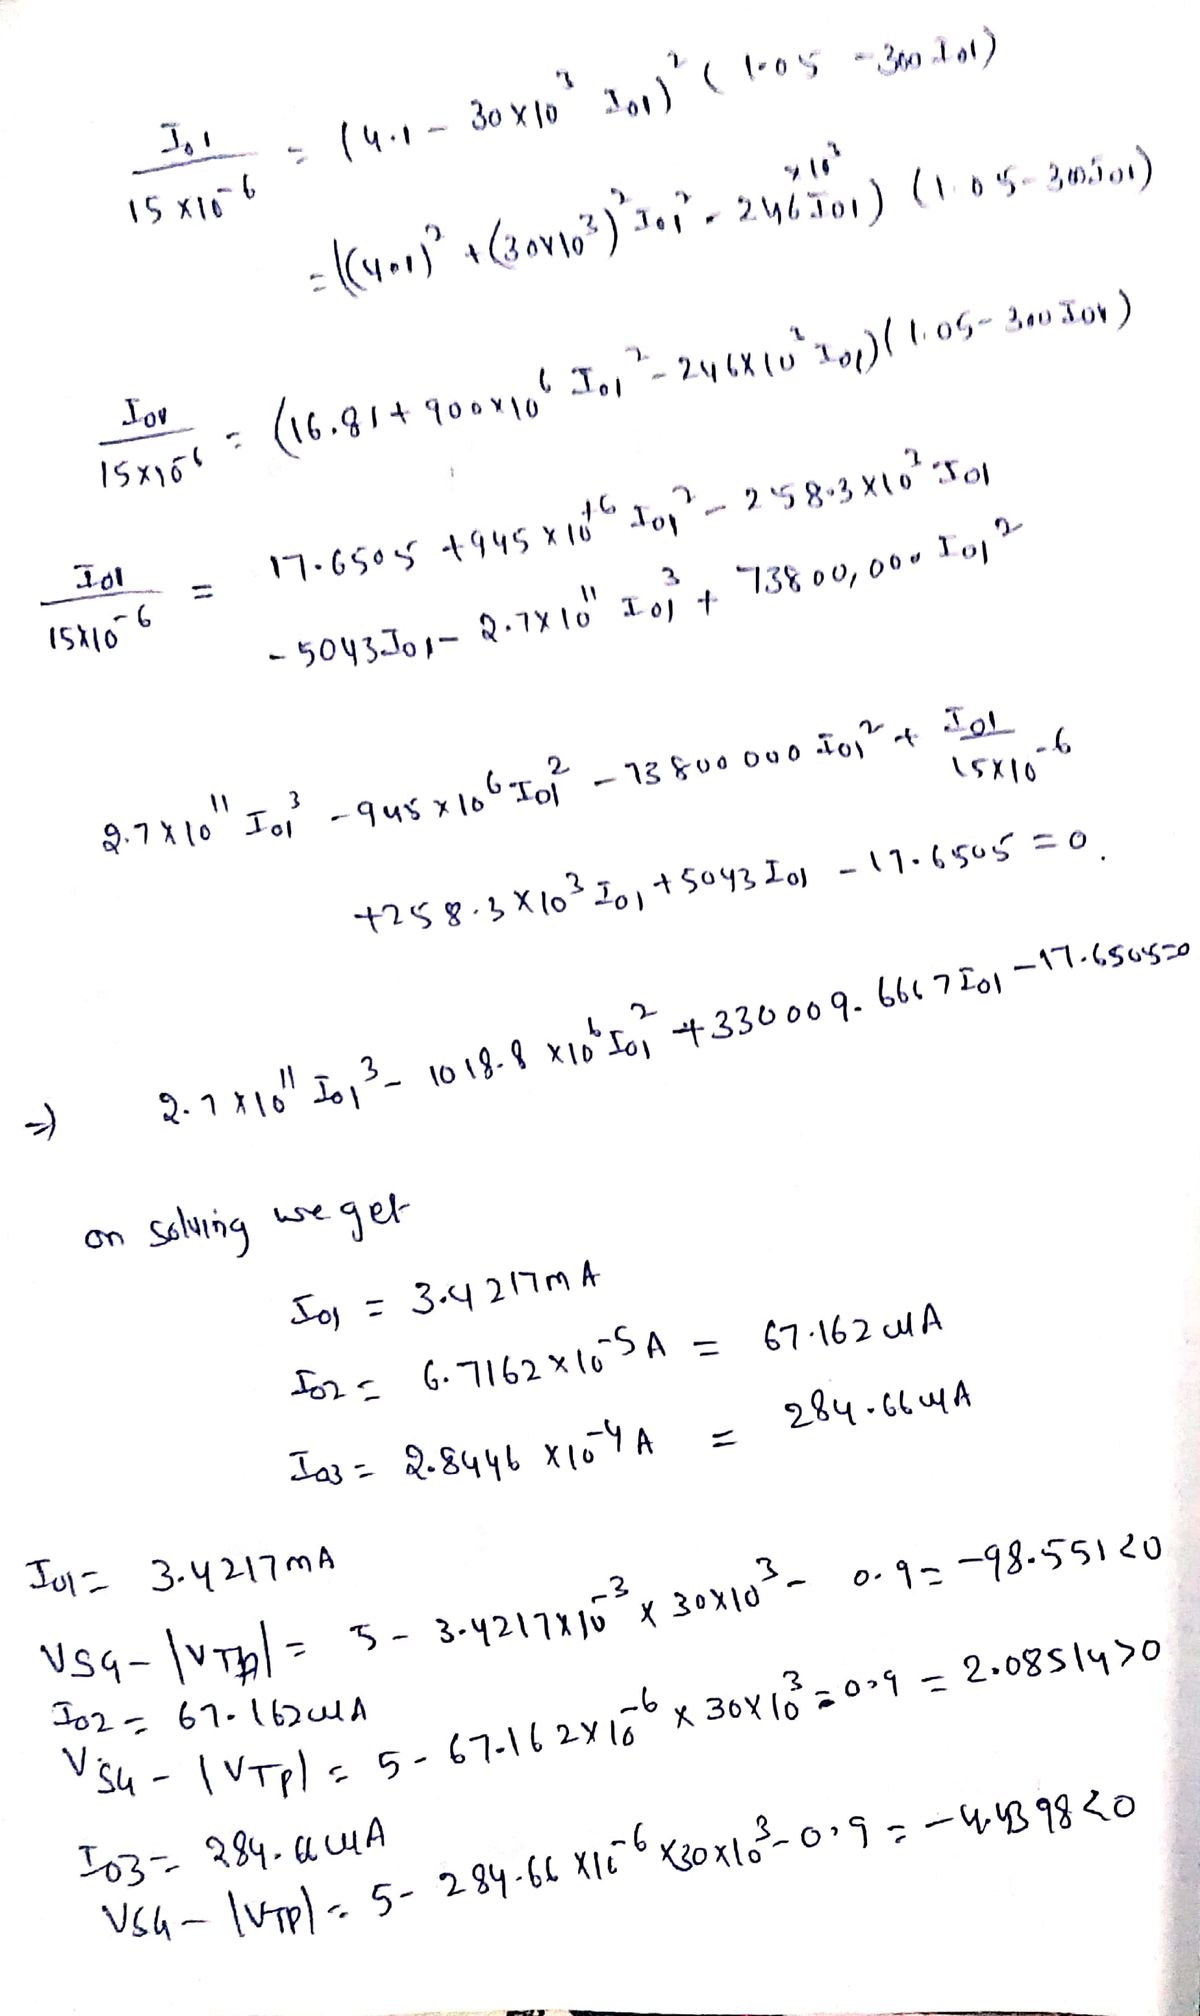 I01/(15 × 10^-6) = (4.1 - 30×10^3 I01)^2 (1.05 - 300 I01)
= ((4.1)^2 + (30×10^3)^2 I01^2 - 246×10^3 I01) (1.05 - 300 I01)
I01/(15×10^-6) = (16.81 + 900×10^6 I01^2 - 246×10^3 I01)(1.05 - 300 I01)
I01/(15×10^-6) = 17.6505 + 945 × 10^+6 I01^2 - 258.3 ×10^3 I01
- 5043 I01 - 2.7×10^11 I01^3 + 73800,000 I01^2
2.7×10^11 I01^3 - 945 × 10^6 I01^2 - 73800000 I01^2 + I01/(15×10^-6)
+258.3 ×10^3 I01 + 5043 I01 - 17.6505 = 0.
⇒ 2.7 ×10^11 I01^3 - 1018.8 ×10^6 I01^2 + 330009.6667 I01 - 17.6505=0
on solving we get
I01 = 3.4217mA
I02 = 6.7162×10^-5 A = 67.162 uA
I03 = 2.8446 ×10^-4 A = 284.66 uA
I01 = 3.4217mA
VSG - |VTp| = 5 - 3.4217×10^-3 × 30×10^3 - 0.9 = -98.551<0
I02 = 67.162uA
VSG - |VTp| = 5 - 67.162×10^-6 × 30×10^3 = 0.9 = 2.08514>0
I03 = 284.66 uA
VSG - |VTP| = 5 - 284.66 ×10^-6 ×30×10^3 - 0.9 = -4.4398<0